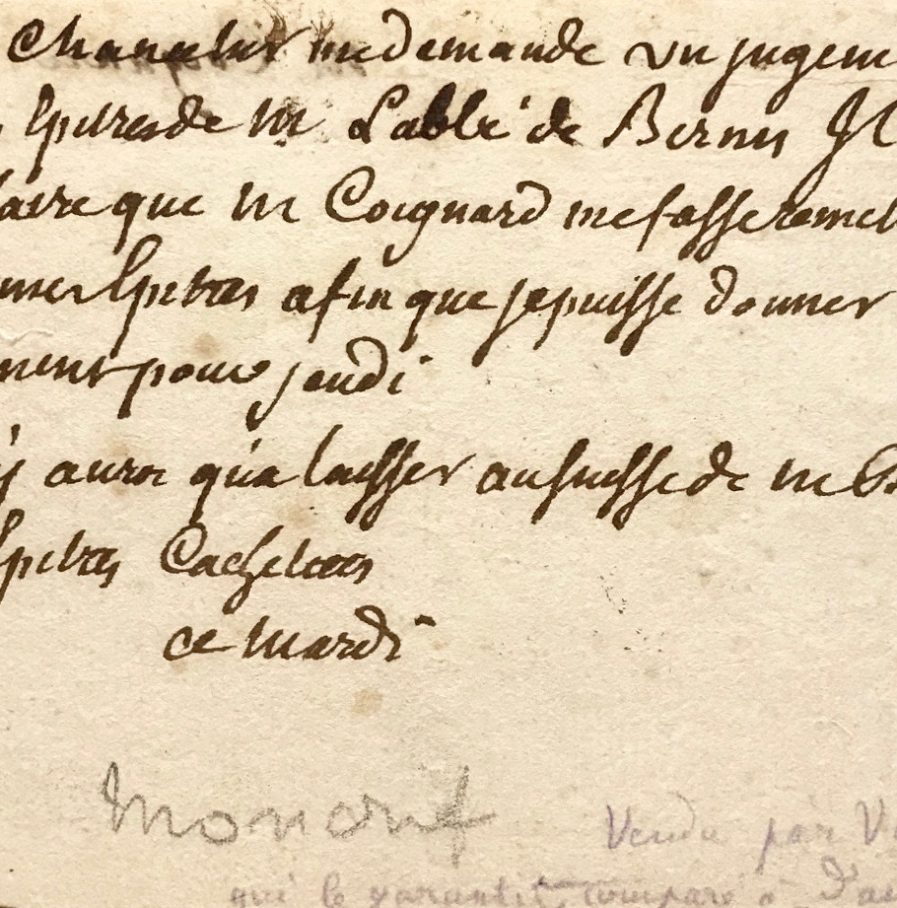 Chancelier me demande un jugem
Epitres de M Labbé de Bernis Il
faire que M Coignard me fasse remet
mier Epitres afin que je puisse donner
ment pour jeudi
y aura qua laisser au suisse de M
Epitres Cachetees
ce mardi
Moncrif
Vendu par V
qui le garantit, comparé à d'au